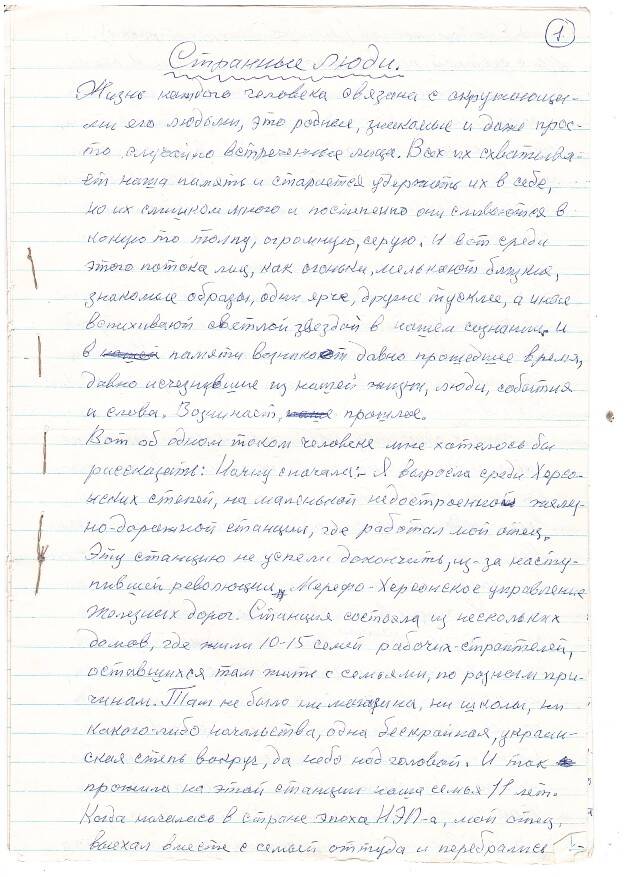 1.
Странные люди.
Жизнь каждого человека связана с окружающи-
ми его людьми, это родные, знакомые и даже прос-
то случайно встреченные лица. Всех их схватыва-
ет наша память и старается удержать их в себе,
но их слишком много и постепенно они сливаются в
какую то толпу, огромную, серую. И вот среди
этого потока лиц, как огоньки, мелькают близкие,
знакомые образы, одни ярче, другие тусклее, а иные
вспыхивают светлой звездой в нашем сознании. И
в нашей памяти возникает давно прошедшее время,
давно исчезнувшие из нашей жизни, люди, события
и слова. Возникает, наше прошлое.
Вот об одном таком человеке мне хотелось бы
рассказать: Начну сначала:- Я выросла среди Херсо-
нских степей, на маленькой недостроенной желез-
но-дорожной станции, где работал мой отец.
Эту станцию не успели докончить, из-за насту-
пившей революции, Мерефо-Херсонское управление
Железных дорог. Станция состояла из нескольких
домов, где жили 10-15 семей рабочих-строителей,
оставшихся там жить с семьями, по разным при-
чинам. Там не было ни магазина, ни школы, ни
какого-либо начальства, одна бескрайная, украин-
ская степь вокруг, да небо над головой. И так
прожила на этой станции наша семья 11 лет.
Когда началась в стране эпоха НЭП-а, мой отец,
выехал вместе с семьей оттуда и перебрались